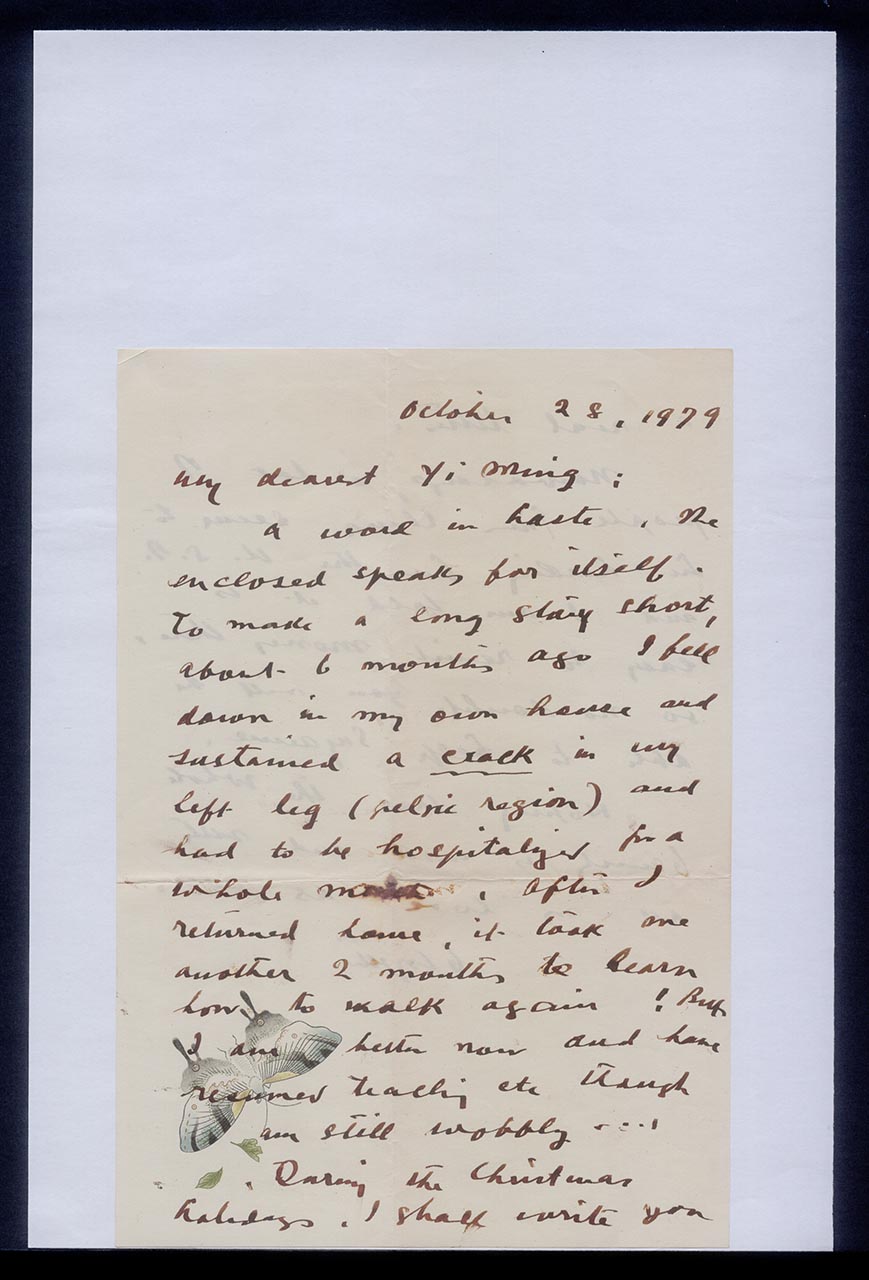 October 28, 1979
My dearest Yi Ming:
a word in haste. The
enclosed speaks for itself.
To make a long story short,
about 6 months ago I fell
down in my own house and
sustained a crack in my
left leg (pelvic region) and
had to be hospitalized for a
whole month. After I
returned home, it took me
another 2 months to learn
how to walk again! But
I am better now and have
resumed teaching etc though
am still wobbly ....
During the Christmas
holidays, I shall write you